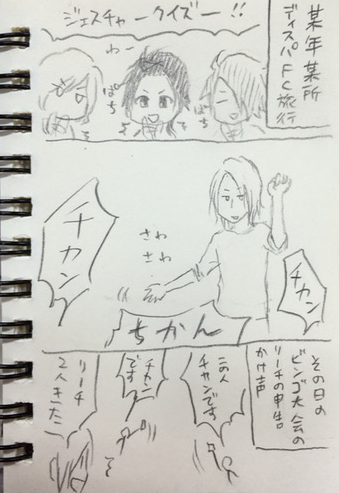 某年某所
ディスパFC旅行
ジェスチャークイズー!!
わー
ぱち
ぱち
チカン
さわ
さわ
ちかん
チカン
その日の
ビンゴ大会の
リーチの申告
かけ声
この人
チカンです
チカン
です
リーチ
2人きた